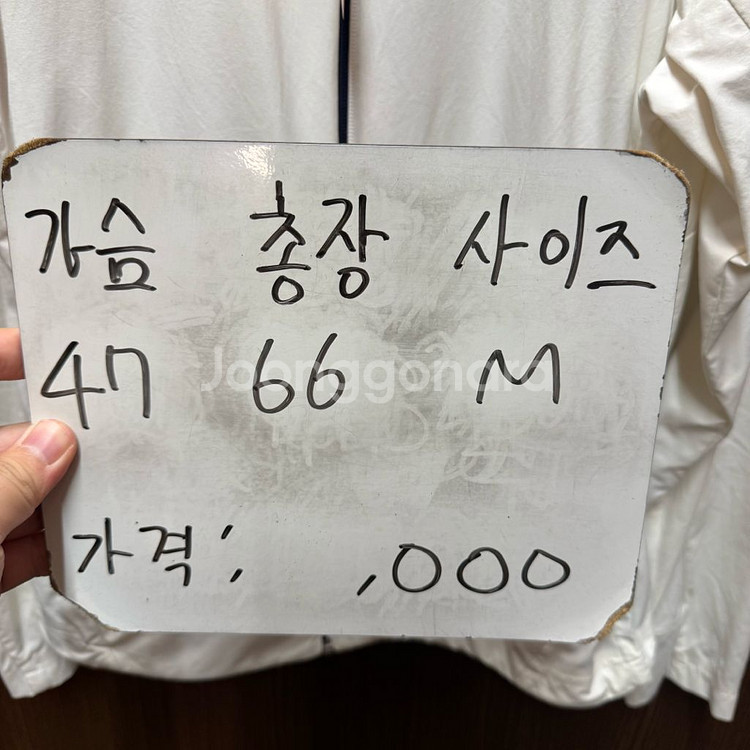 가슴 총장 사이즈
47 66 M
Joonggonara
가격: ,000